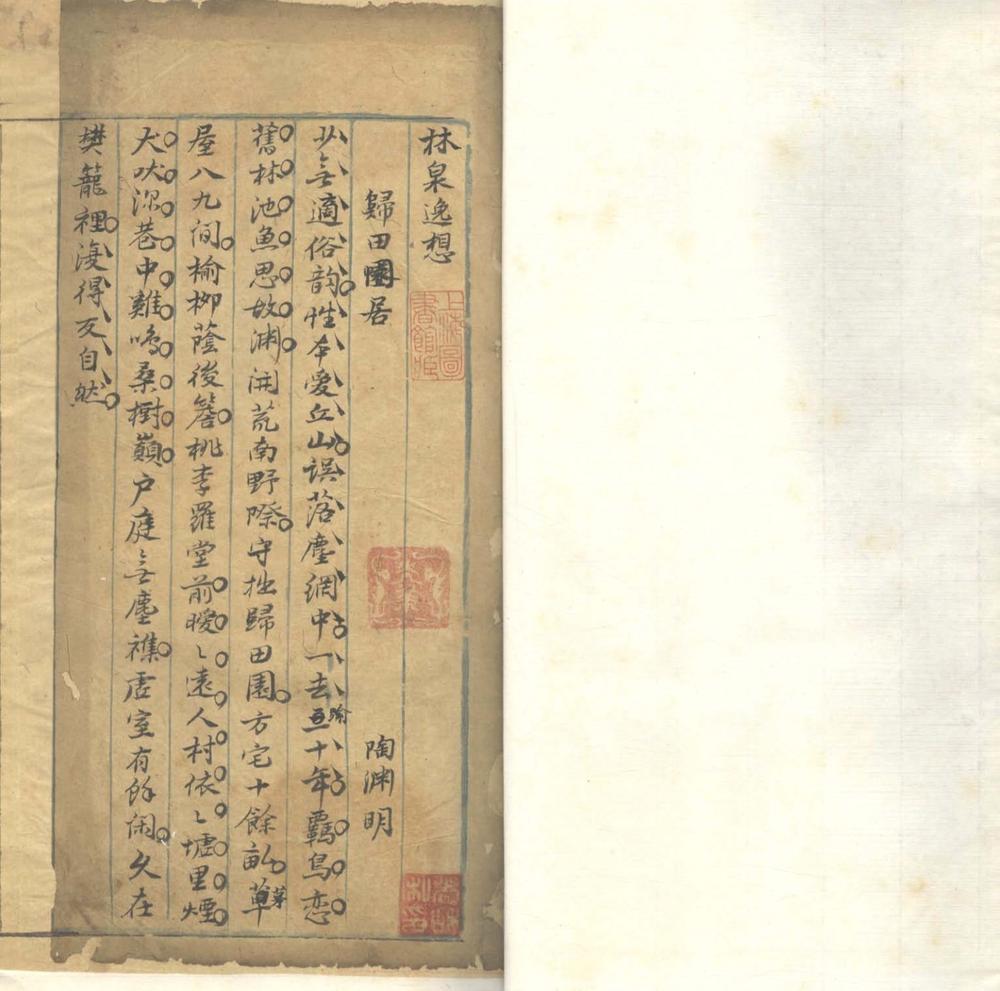 林泉逸想
上海圖書館藏
歸田園居　陶渊明
少無適俗韵性本愛丘山誤落塵網中一去三踰十年羈鳥恋
舊林池魚思故渊開荒南野際守拙歸田園方宅十餘畝草茅
屋八九间榆柳蔭後簷桃李羅堂前曖〻遠人村依〻墟里煙
犬吠深巷中雞鳴桑樹巔户庭無塵襍虛室有餘闲久在
樊籠裡復得反自然